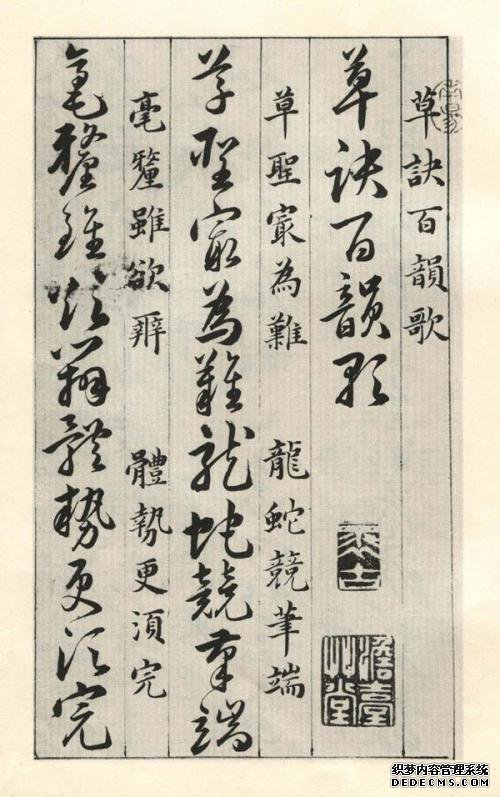 草訣百韻歌
草訣百韻歌
草聖㝡為難　龍蛇競筆端
草聖㝡為難龍蛇競筆端
毫釐雖欲辨　體勢更湏完
毫釐雖欲辨體勢更須完
织梦内容管理系统
DEDECMS.COM